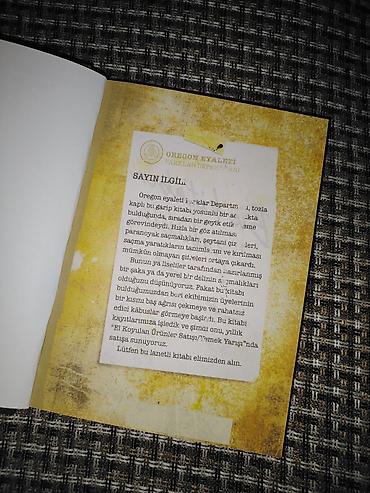 OREGON EYALETİ
SAYIN İLGİLİ
Oregon eyaleti Parklar Departmanı, tozla
kaplı bu garip kitabı yosunlu bir ağaçlıkta
bulduğunda, sıradan bir geyik etiketleme
görevindeydi. Hızla bir göz atılması
paranoyak saçmalıkları, şeytani çizimleri,
saçma yaratıkların tanımlarını ve kırılması
mümkün olmayan şifreleri ortaya çıkardı.
Bunun ya liseliler tarafından hazırlanmış
bir şaka ya da yerel bir delinin saçmalıkları
olduğunu düşünüyoruz. Fakat bu kitabı
bulduğumuzdan beri ekibimizin üyelerinin
bir kısmı baş ağrısı çekmeye ve rahatsız
edici kâbuslar görmeye başladı. Bu kitabı
kayıtlarımıza işledik ve şimdi onu, yıllık
"El Koyulan Ürünler Satışı/Yemek Yarışı"nda
satışa sunuyoruz.
Lütfen bu lanetli kitabı elimizden alın.